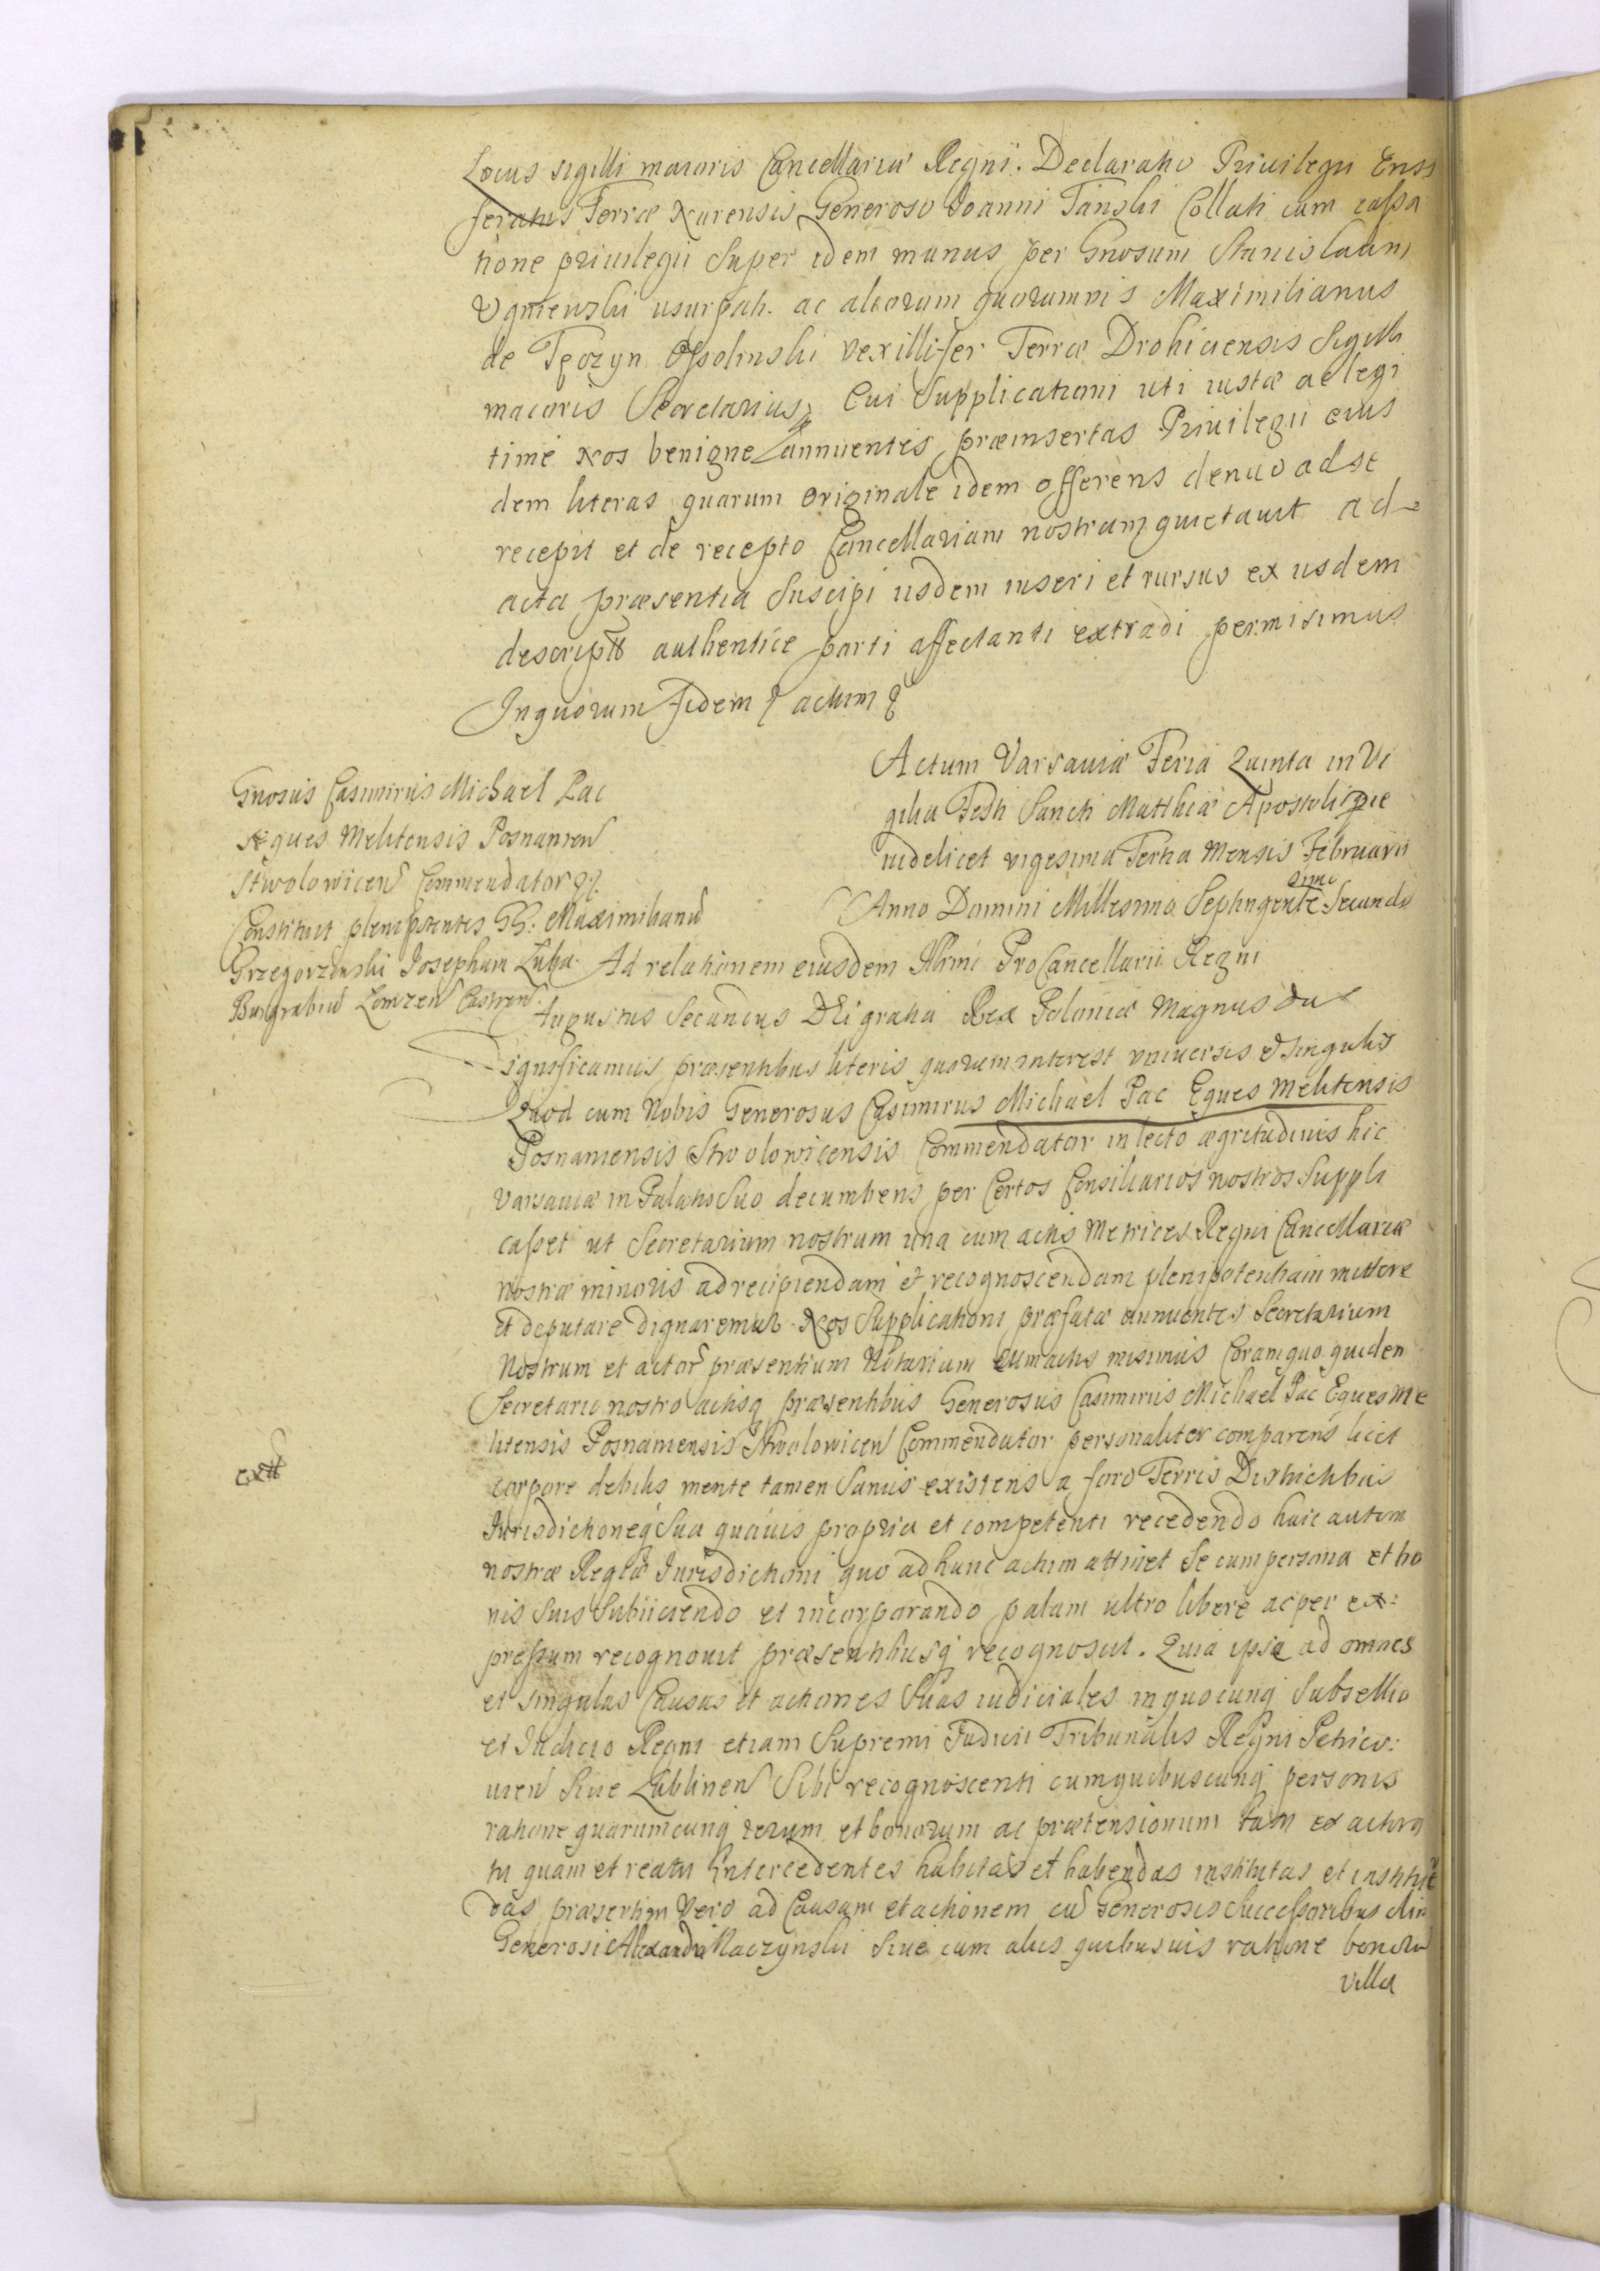 Locus sigilli maioris Cancellariæ Regni. Declaratio Priuilegii Ensi
feratus Terræ Nurensis Generoso Joanni Tanski Collati cum cassa
tione priuilegii super idem munus per Gnosum Stanislaum
usurpati. ac aliorum quorumvis Maximilianus
de Tęczyn Ossolinski vexillifer Terræ Drohiciensis Sigilli
maioris Secretarius. Cui Supplicationi uti iustæ ac legi
timæ Nos benigne annuentes præinsertas Priuilegii eius
dem literas quarum originale idem offerens denuo ad se
recepit et de recepto Cancellariam nostram quietauit ad
acta præsentia Suscipi iisdem inseri et rursus ex iisdem
descriptt authentice parti affectanti extradi permisimus
In quorum fidem actum
Actum Varsauiæ Feria Quinta in Vi
gilia Festi Sancti Matthiæ Apostoli
videlicet vigesima Tertia Mensis Februarii
Anno Domini Millesimo Septingentesimo Secundo
Gnosus Casimirus Michael Pac
Æques Melitensis Posnanien
Stwolowicen Commendator
Constituit plenipotentes GG: Maximilianu
Grzegorzewski Josephum Luba
Burgrabiu Lomzen Castren
Ad relationem eiusdem Illrmi ProCancellarii Regni
Augustus Secundus DEi gratia Rex Poloniæ Magnus Dux
Significamus præsentibus literis quorum interest vniuersis et singulis
Quod cum Nobis Generosus Casimirus Michael Pac Eques Melitensis
Posnaniensis Stwolowicensis Commendator in lecto ægritudinis hic
Varsauiæ in Palatio Suo decumbens per Certos Consiliarios nostros Suppli
casset ut Secretarium nostrum una cum actis Metrices Regni Cancellariæ
nostræ minoris ad recipiendam et recognoscendam plenipotentiam mittere
et deputare dignaremur Nos Supplicationi præfatæ annuentes Secretarium
Nostrum et actor præsentium Notarium cum actis misimus Coram quo quidem
Secretario nostro actisq præsentibus Generosus Casimirus Michael Pac Eques Me
litensis Posnaniensis Stwolowicen Commendator personaliter comparens licet
extt
corpore debilis mente tamen Sanus existens a foro Terris Districtibus
Jurisdictioneq Sua quavis propria et competenti recedendo huic autem
nostræ Regiæ Jurisdictioni quo ad hunc actum attinet Se cum persona et bo
nis Suis Subiiciendo et incorporando palam ultro libere ac per ex:
pressum recognouit præsentibusq recognoscit. Quia ipse ad omnes
et singulas Causas et actiones Suas iudiciales in quocunq Subsellio
et Judicio Regni etiam Supremi Judicii Tribunalis Regni Petrico:
uien Siue Lublinen Sibi recognoscenti cum quibuscunq personis
ratione quarumcunq rerum et bonorum ac prætensionum tam ex actora
tu quam et reatu Intercedentes habitas et habendas institutas et instituē
das præsertim Vero ad Causam et actionem cū Generosis Successoribus olim
Generosi Alexandri Raczynski Siue cum aliis quibusuis ratione bonoru
villa